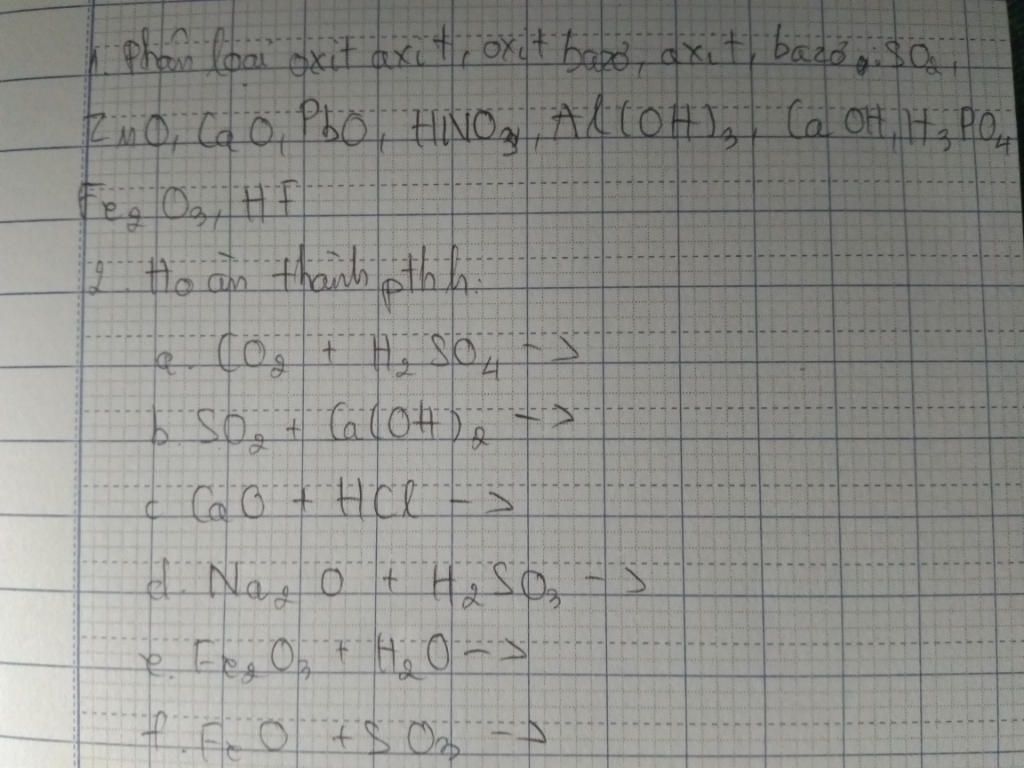 1. Phân loại oxit axit, oxit bazơ, axit, bazơ: SO2,
ZnO, CaO, PbO, HNO3, Al(OH)3, CaOH, H3PO4
Fe2O3, HF
2. Hoàn thành pthh:
a. CO2 + H2SO4 ->
b. SO2 + Ca(OH)2 ->
c CaO + HCl ->
d. Na2O + H2SO3 ->
e. Fe2O3 + H2O ->
f. FeO + SO3 ->